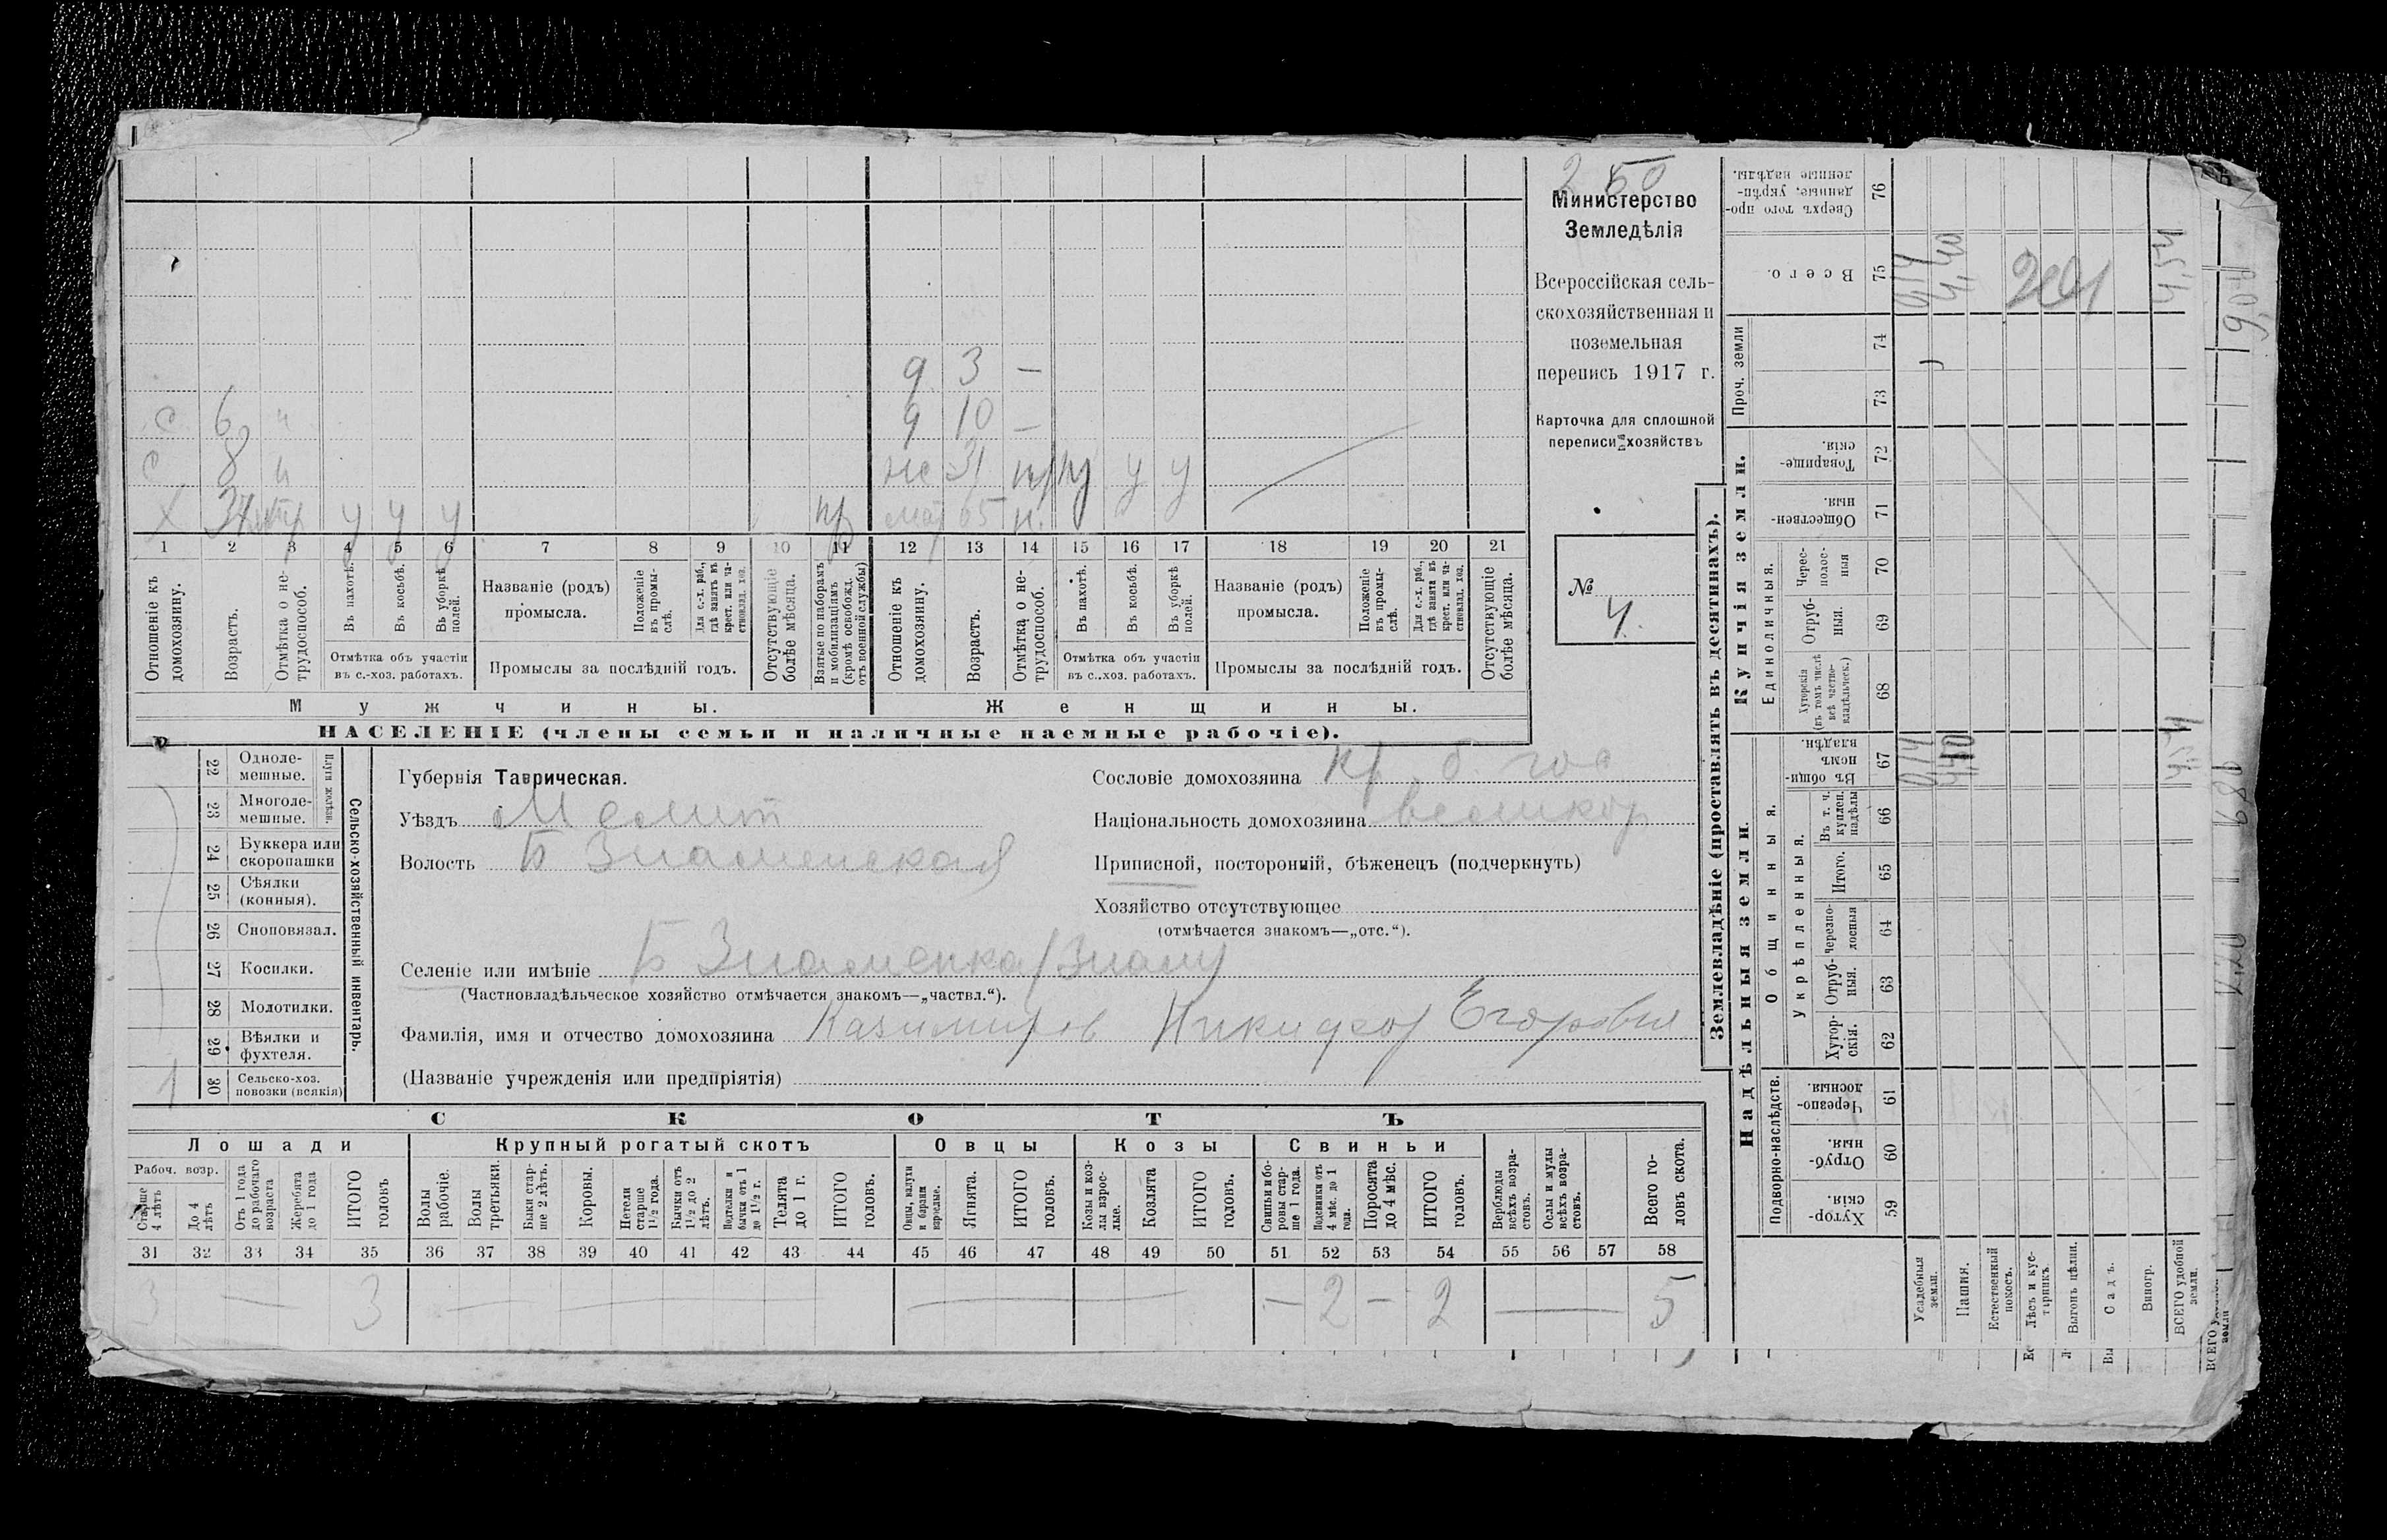 250
Министерство
Земледѣлія
Всероссійская сель-
скохозяйственная и
поземельная
перепись 1917 г.
Карточка для сплошной
переписи хозяйствъ
№
4.
д 3 —
с 6 д 10 —
с 8 31 у у
Х у у у 65
1 2 3 4 5 6 7 8 9 10 11 12 13 14 15 16 17 18 19 20 21
Отношеніе къ домохозяину.
Возрастъ.
Отмѣтка о не-трудоспособ.
Въ пахотѣ.
Въ косьбѣ.
Въ уборкѣ полей.
Отмѣтка объ участіи
въ с.-хоз. работахъ.
Названіе (родъ)
промысла.
Положеніе въ промы-слѣ.
Для с.-х. раб., гдѣ занятъ въ крест. или ча-стновлад. хоз.
Промыслы за послѣдній годъ.
Отсутствующіе болѣе мѣсяца.
Взятые по наборамъ и мобилизаціямъ (кромѣ освобожд. отъ военной службы)
Отношеніе къ домохозяину.
Возрастъ.
Отмѣтка о не-трудоспособ.
Въ пахотѣ.
Въ косьбѣ.
Въ уборкѣ полей.
Отмѣтка объ участіи
въ с..хоз. работахъ.
Названіе (родъ)
промысла.
Положеніе въ промы-слѣ.
Для с.-х. раб., гдѣ занята въ крест. или ча-стновлад. хоз.
Промыслы за послѣдній годъ.
Отсутствующіе болѣе мѣсяца.
Мужчины. Женщины.
НАСЕЛЕНІЕ (члены семьи и наличные наемные рабочіе).
22 Одноле-мешные.
23 Многоле-мешные.
Плуги желѣзн.
24 Буккера или скоропашки
25 Сѣялки (конныя).
26 Сноповязал.
27 Косилки.
28 Молотилки.
29 Вѣялки и фухтеля.
30 Сельско-хоз. повозки (всякія)
1
Сельско-хозяйственный инвентарь.
Губернія Таврическая.
Уѣздъ Мелит
Волость Б Знаменская
Сословіе домохозяина кр. б. гос
Національность домохозяина великор
Приписной, посторонній, бѣженецъ (подчеркнуть)
Хозяйство отсутствующее
(отмѣчается знакомъ—„отс.“).
Селеніе или имѣніе Б Знаменка/Знам/
(Частновладѣльческое хозяйство отмѣчается знакомъ—„частвл.“).
Фамилія, имя и отчество домохозяина Казимиров Никифор Егорович
(Названіе учрежденія или предпріятія)
СКОТЪ
Лошади Крупный рогатый скотъ Овцы Козы Свиньи
Рабоч. возр.
Старше 4 лѣтъ
До 4 лѣтъ
Отъ 1 года до рабочаго возраста
Жеребята до 1 года
ИТОГО головъ
Волы рабочіе.
Волы третьяки.
Быки стар-ше 2 лѣтъ.
Коровы.
Нетели старше 1½ года.
Бычки отъ 1½ до 2 лѣтъ.
Подтелки и бычки отъ 1 до 1½ г.
Телята до 1 г.
ИТОГО головъ.
Овцы, валухи и бараны взрослые.
Ягнята.
ИТОГО головъ.
Козы и коз-лы взрос-лые.
Козлята
ИТОГО головъ.
Свиньи и бо-ровы стар-ше 1 года.
Подсвинки отъ 4 мѣс. до 1 года.
Поросята до 4 мѣс.
ИТОГО головъ.
Верблюды всѣхъ возра-стовъ.
Ослы и мулы всѣхъ возра-стовъ.
Всего го-ловъ скота.
31 32 33 34 35 36 37 38 39 40 41 42 43 44 45 46 47 48 49 50 51 52 53 54 55 56 57 58
3 — 3 — — — — 2 — 2 — 5
Землевладѣніе (проставлять въ десятинахъ).
Надѣльныя земли.
Купчія земли.
Проч. земли
Подворно-наслѣдств.
Общинныя.
Укрѣпленныя.
Единоличныя.
Хутор-скія. 59
Отруб-ныя. 60
Черезпо-лосныя. 61
Хутор-скія. 62
Отруб-ныя. 63
Черезпо-лосныя 64
Итого. 65
Въ т. ч. куплен. надѣлы 66
Въ общин-номъ владѣн. 67
Хуторскія (въ томъ числѣ всѣ частно-владѣльческ.) 68
Отруб-ныя. 69
Черес-полос-ныя 70
Обществен-ныя. 71
Товарище-скія. 72
73
74
Всего. 75
Сверхъ того про-данные, укрѣп-ленные надѣлы. 76
Усадебныя земли. 014 014
Пашня. 4,40 4,40
Естественный покосъ.
Лѣсъ и кус-тарникъ.
Выгонъ цѣлин.
Садъ.
Виногр.
ВСЕГО удобной земли. 4,54 4,54